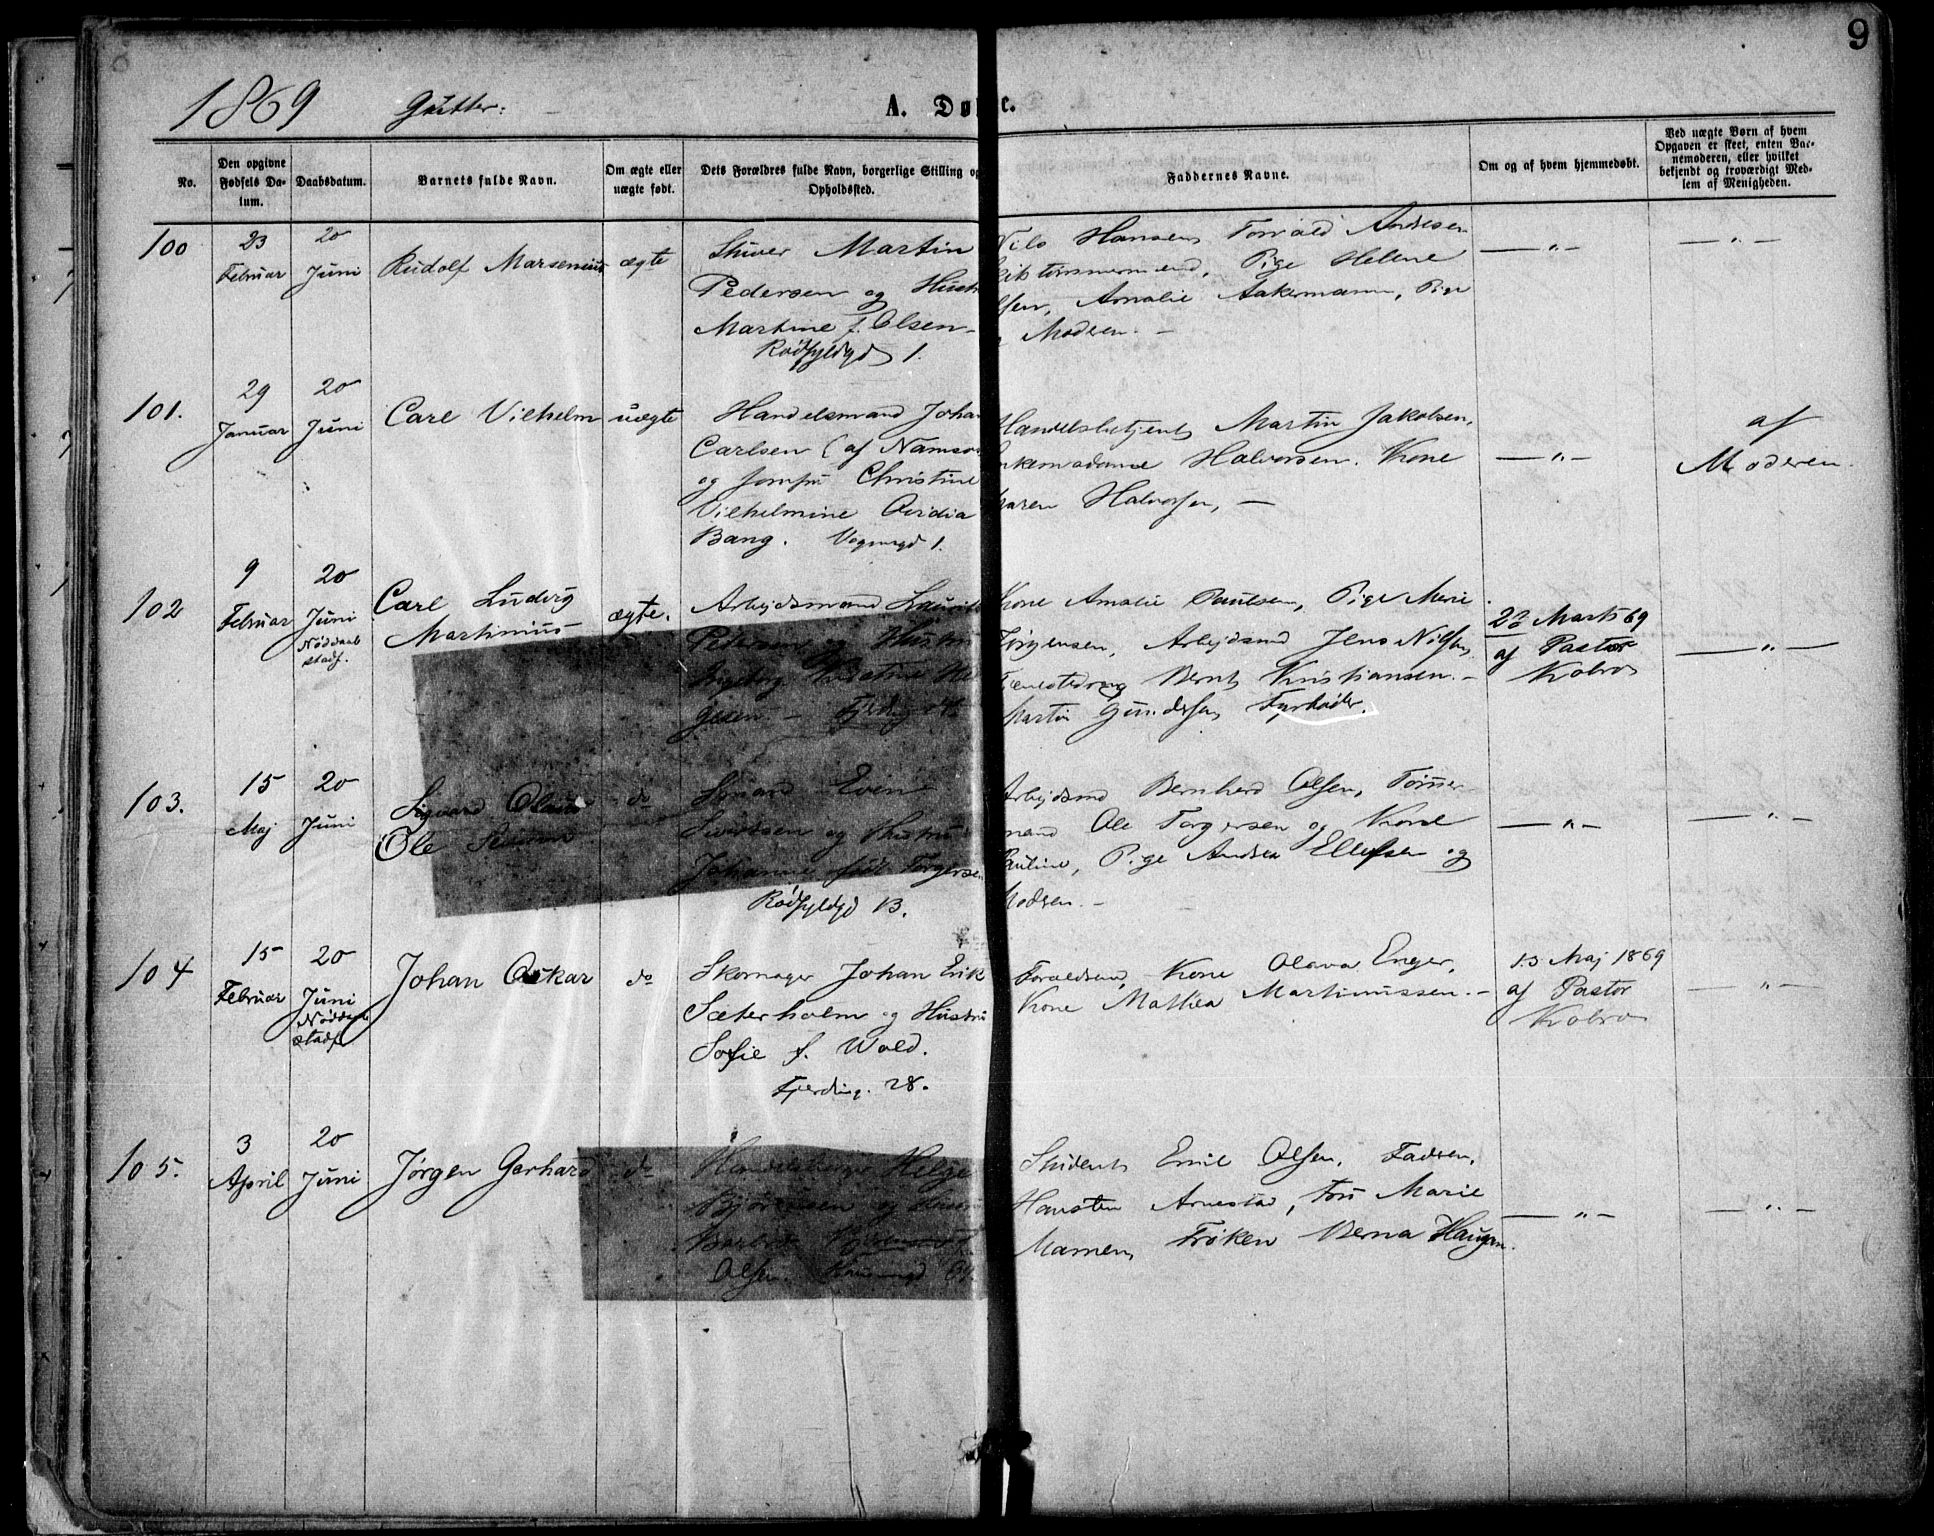 9
1869 Gutter: A. Dø e.
No.
Den opgivne Fødsels Da-tum.
Daabsdatum.
Barnets fulde Navn.
Om ægte eller uægte født.
Dets Forældres fulde Navn, borgerlige Stilling og Opholdssted.
Faddernes Navne.
Om og af hvem hjemmedøbt.
Ved uægte Børn af hvem Opgaven er skeet, enten Bar-nemoderen, eller hvilket bekjendt og troværdigt Med-lem af Menigheden.
100
23 Februar
20 Juni
Rudolf Marsenius
ægte
Skriver Martin
Pedersen og Hustr
Martine f. Olsen
Rødfyldgd 1.
Nils Hansen, Torvald Andresen
Pige Helene
lsen, Amalie Aakermann, Pige
Modren. —
— " —
— " —
101.
29 Januar
20 Juni
Carl Vilhelm
uægte
Handelsmand Joha
Carlsen (af Namso
og Jomfru Christine
Vilhelmine Ovidia
Bang. Vognmgd 1.
Handelsbetjent Martin Jakobsen,
nkemadame Halvorsen. Kone
aren Halvorsen, —
— " —
af
Moderen.
102
9 Februar
20 Juni
Nøddaab stadf.
Carl Ludvig
Martinius
ægte.
Arbejdsmand Laurit
Pedersen og Hustru
gesen. —
Kone Amalie Paulsen, Pige Marie
Jørgensen, Arbejdsmd Jens Nilsen,
Tjenestedreng Bernt Kristiansen. —
Martin Gundersen Farbroder.
22 Marts 69
af Pastor
Kobro
— " —
103.
15 Maj
20 Juni
Sigvard Olaus
Ole
do
Sømand Even
Sivertsen og Hustru
Johanne født Torgersen
Rødfyldgd 13.
Arbejdsmd Bernhard Olsen, Tømmer-
mand Ole Torgersen og Kone
Pauline, Pige Andrea Ellefsen og
Modren. —
— " —
— " —
104
15 Februar
20 Juni
Nøddaab stadf.
Johan Oskar
do
Skomager Johan Erik
Sæterholm og Hustru
Sofie f. Wold.
Fjerding. 28.
Forældrene, Kone Olava Enger,
Kone Mathea Martinussen. —
13 Maj 1869
af Pastor
Kobro
— " —
105.
3 April
20 Juni
Jørgen Gerhard
do
Handelsborger Helge
Bjørnsen og Hustru
Olsen.
Student Emil Olsen, Fadren,
Hansten Arnestad, Fru Marie
Mamen, Frøken Verna Haugen.
— " —
— " —